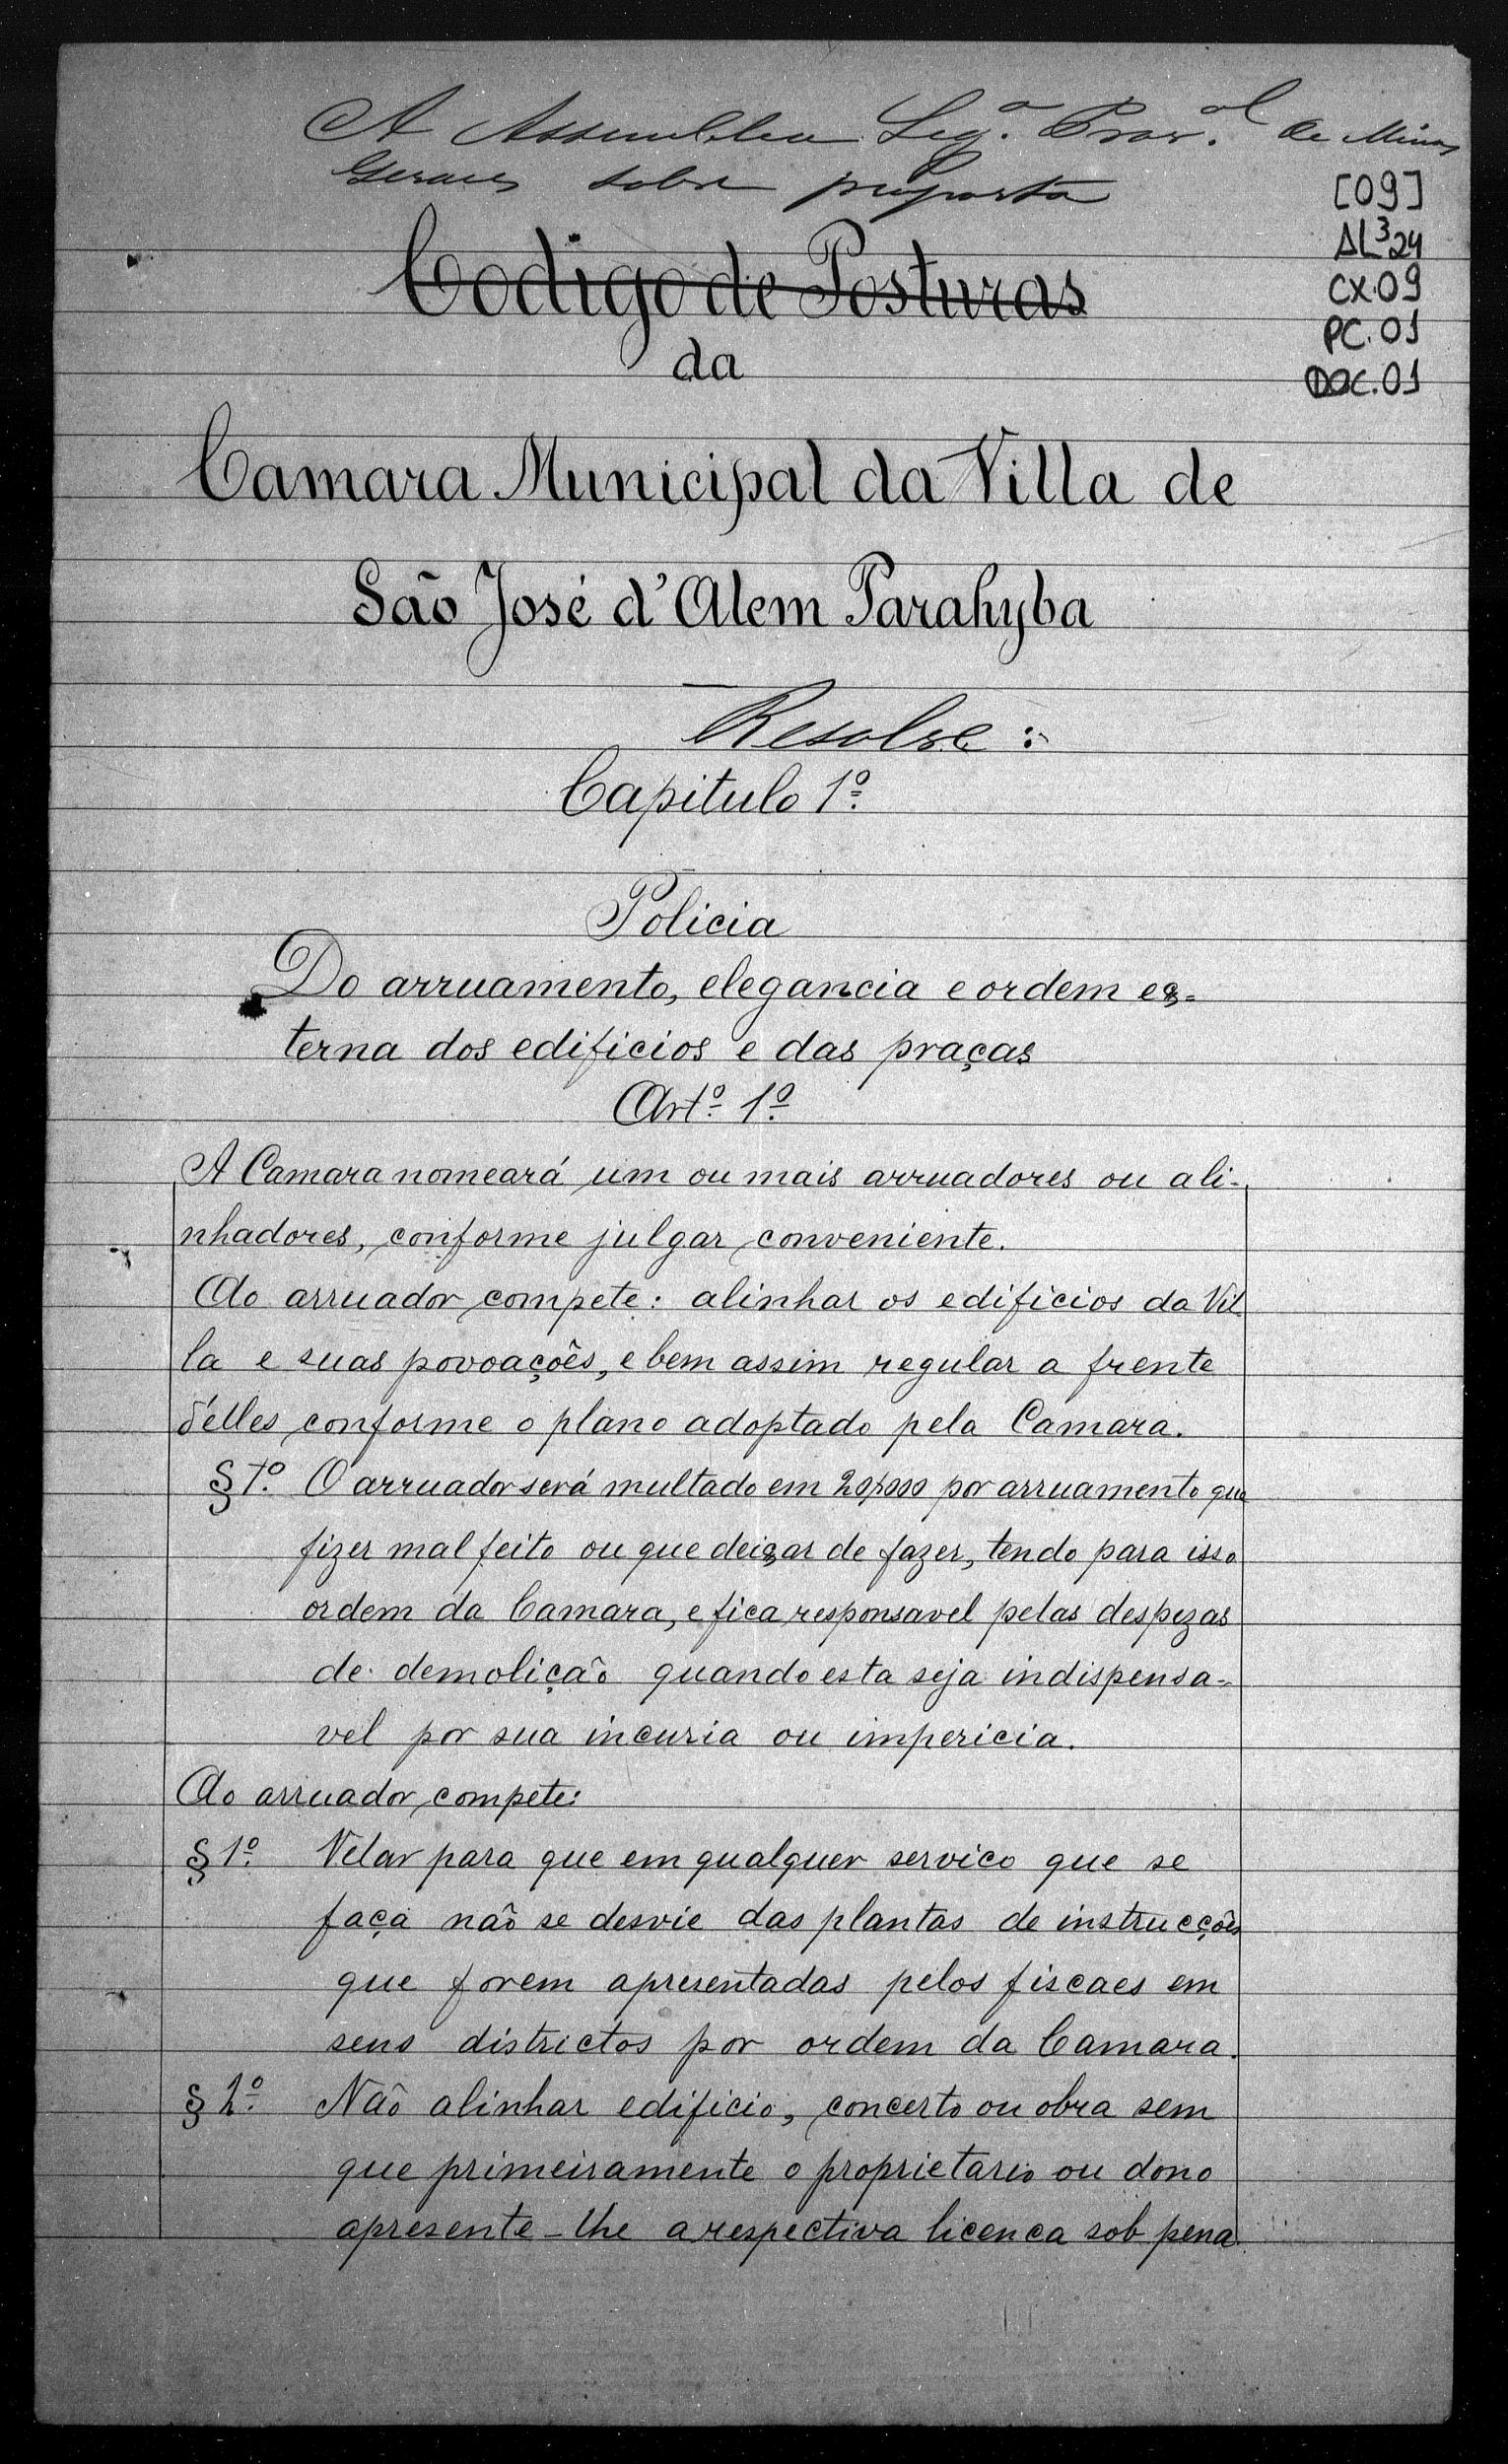 A Assemblea Leg.ª Prov.al de Minas
Geraes sobre proposta
[09]
AL³24
CX.09
PC.01
DOC.01
Codigo de Posturas
da
Camara Municipal da Villa de
São José d'Alem Parahyba
Resolve:
Capitulo 1º
Policia
Do arruamento, elegancia e ordem ex-
terna dos edificios e das praças
Artº 1º
A Camara nomeará um ou mais arruadores ou ali-
nhadores, conforme julgar conveniente.
Ao arruador compete: alinhar os edificios da Vil
la e suas povoações, e bem assim regular a frente
d'elles conforme o plano adoptado pela Camara.
§ 1º O arruador será multado em 20$000 por arruamento que
fizer mal feito ou que deixar de fazer, tendo para isso
ordem da Camara, e fica responsavel pelas despezas
de demolição quando esta seja indispensa-
vel por sua incuria ou impericia.
Ao arruador compete:
§ 1º Velar para que em qualquer servico que se
faça não se desvie das plantas de instrucções
que forem apresentadas pelos fiscaes em
seus districtos por ordem da Camara.
§ 2º Não alinhar edificio, concerto ou obra sem
que primeiramente o proprietario ou dono
apresente-lhe a respectiva licenca sob pena